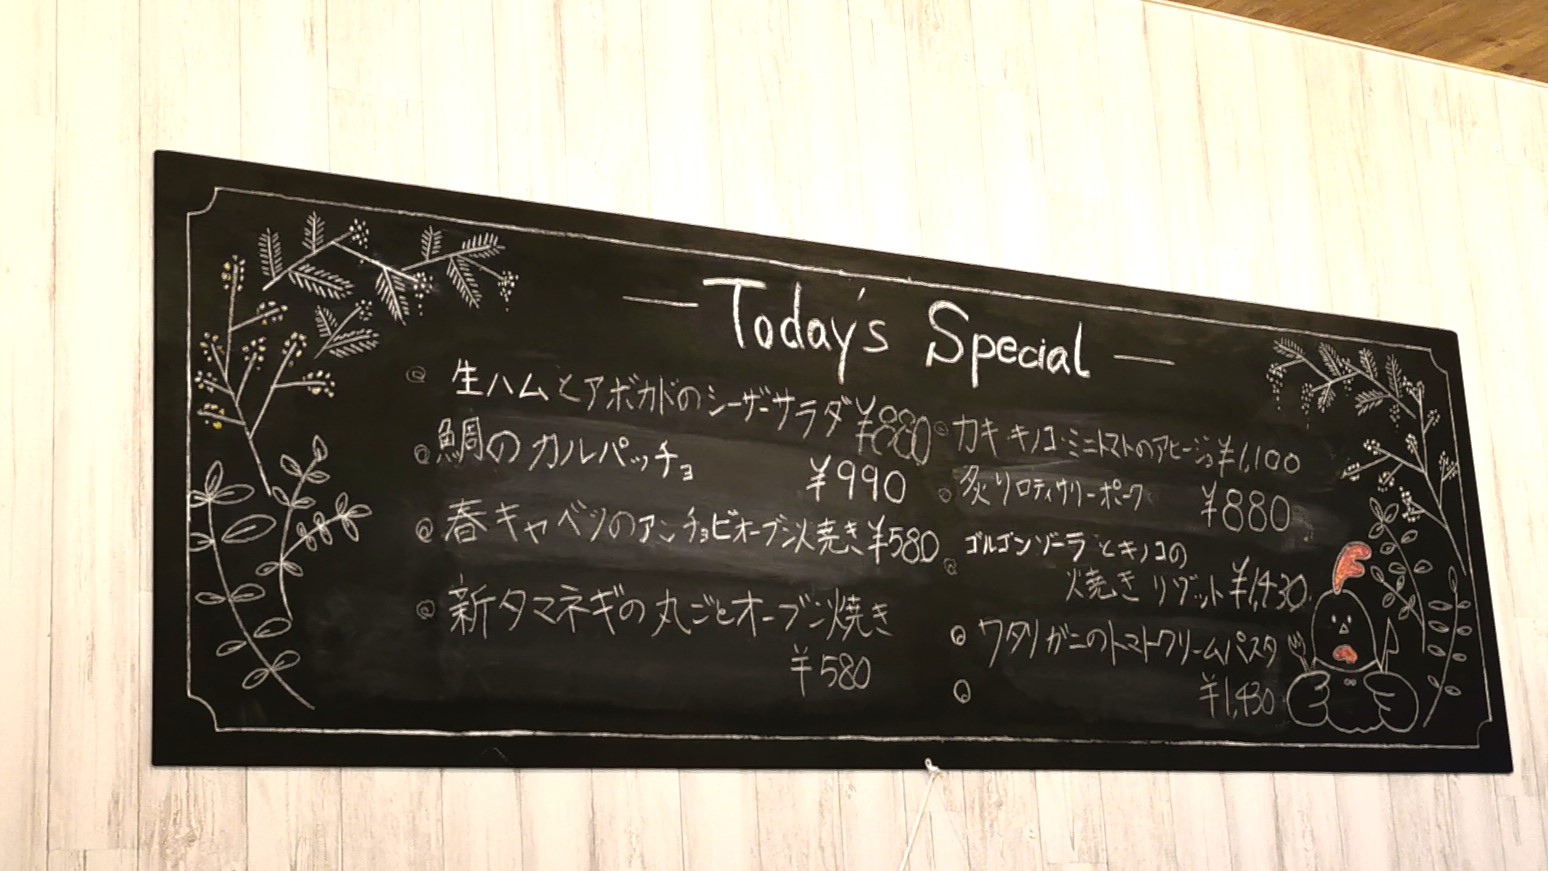 Today's Special
生ハムとアボカドのシーザーサラダ ¥880
鯛のカルパッチョ ¥990
春キャベツのアンチョビオーブン焼き ¥580
新タマネギの丸ごとオーブン焼き
¥580
カキ・キノコ・ミニトマトのアヒージョ ¥1,100
炙りロティサリーポーク ¥880
ゴルゴンゾーラとキノコの
焼きリゾット ¥1,430
ワタリガニのトマトクリームパスタ
¥1,430